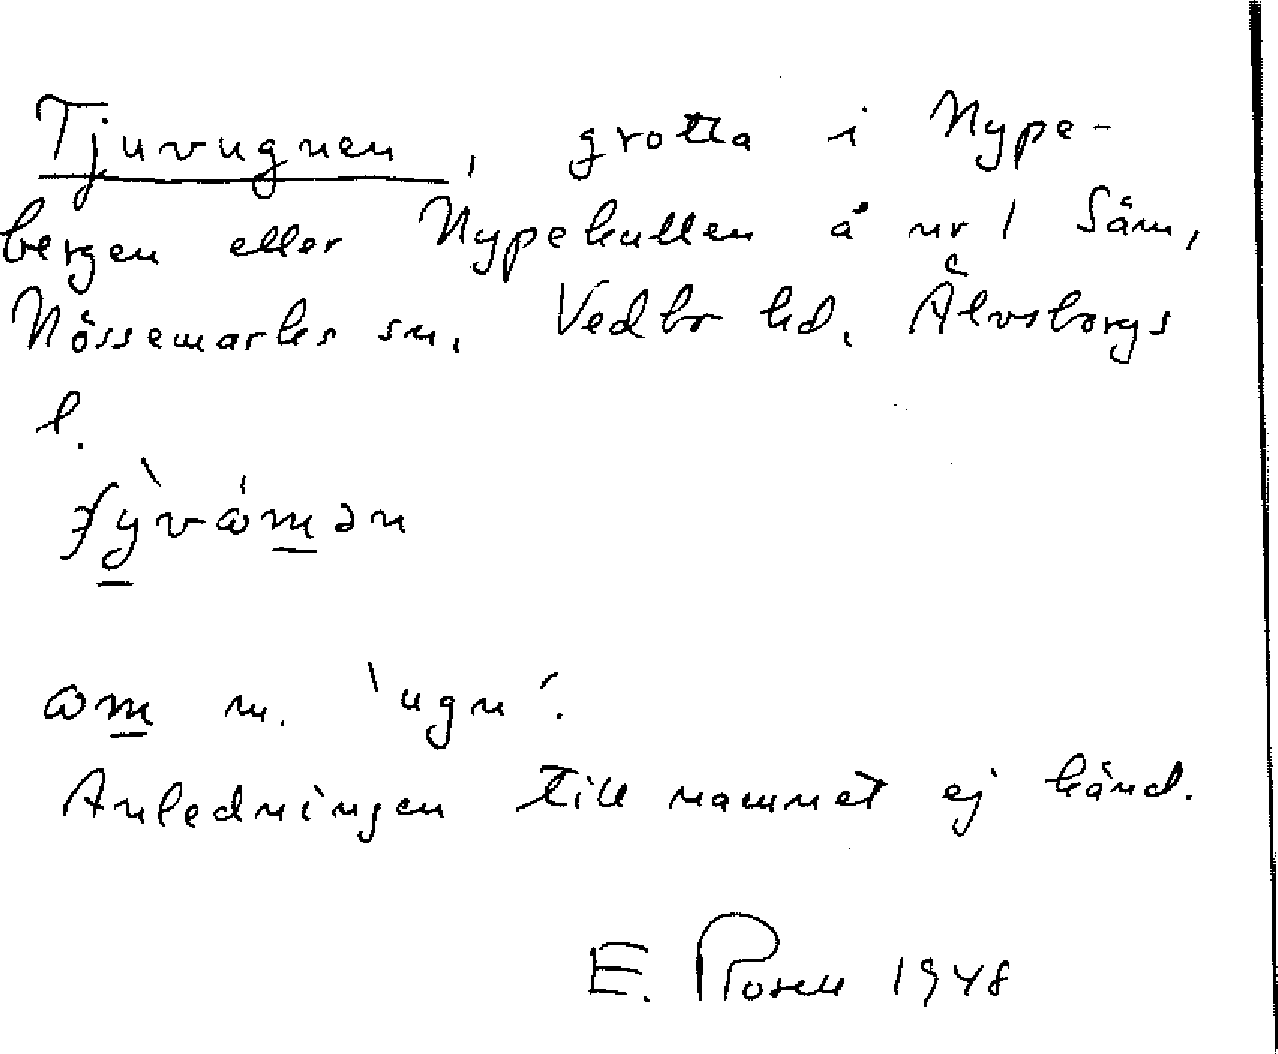 Tjuvugnen, grotta i Nype-
bergen eller Nypekullen å nr 1 Säm,
Nössemarks sn, Vedbo hd, Älvsborgs
l.
am m. 'ugn'.
Anledningen till namnet ej känd.
E. Rosen 1948